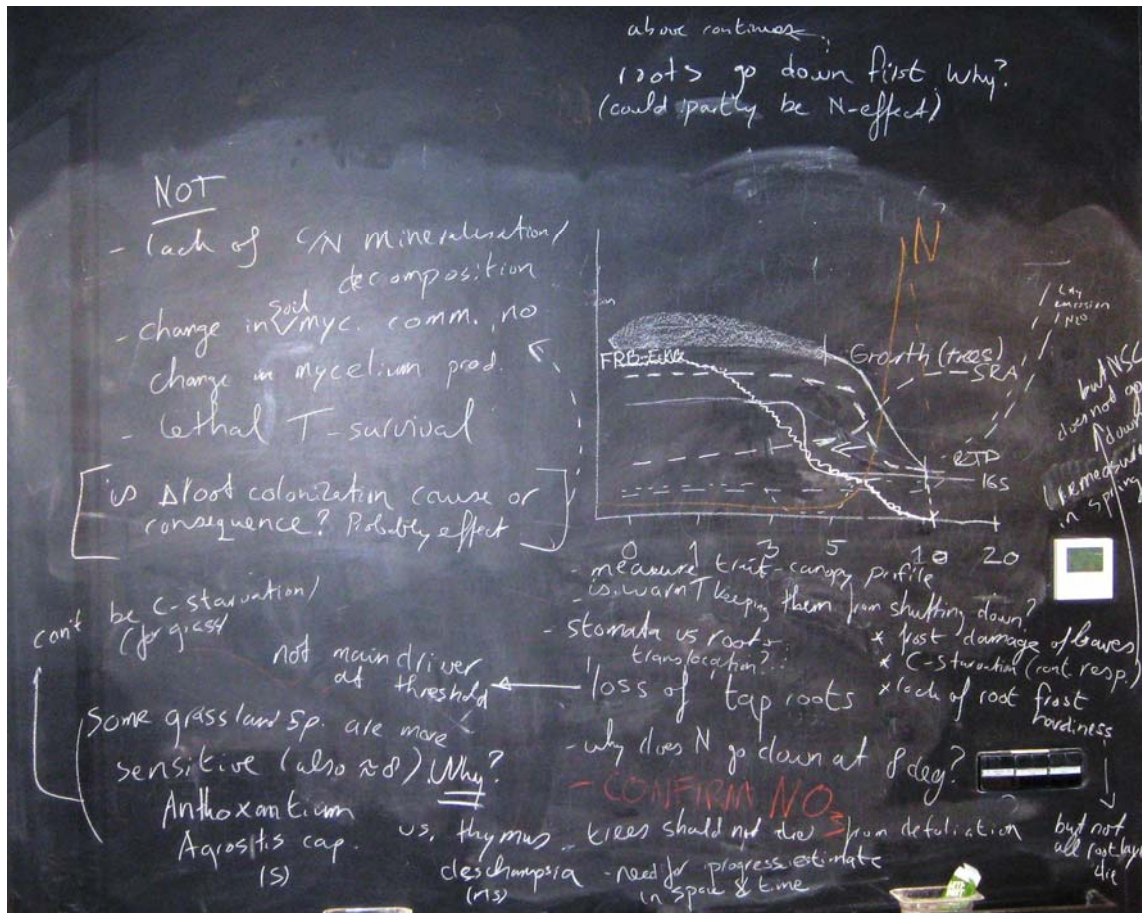 above continues
roots go down first why?
(could partly be N-effect)
NOT
- lack of C/N mineralisation/
decomposition
- change in soil myc. comm., no
change in mycelium prod.
- Lethal T-survival
is Δ root colonization cause or
consequence? Probably effect
can't be C-starvation/
(for grass)
not main driver
at threshold
Some grassland sp. are more
sensitive (also ≈ 8). Why?
Anthoxantium
Agrostis cap.
(s)
vs. thymus
deschampsia
(ns)
N
emission
N2O
FRB-
Growth (trees)
SRA
RTD
16S
0 1 3 5 10 20
but NSC
does not go
down
remeasure
in spring
- measure trait-canopy profile
- is warm T keeping them from shutting down?
- stomata vs roots
translocation?
loss of tap roots
* frost damage of leaves
* C-starvation (cont. resp.)
* lack of root frost
hardiness
- why does N go down at 8 deg?
- CONFIRM NO3
- trees should not die from defoliation
- need for progress estimate
in space & time
but not
all root
die